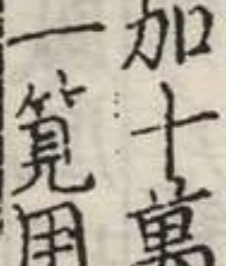 加十萬
一筧用